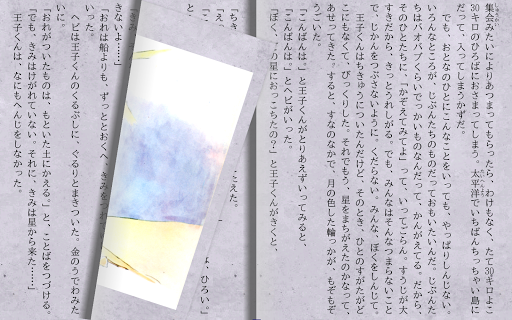 集会みたいによりあつまってもらったら、わけもなく、たて30キロよこ
30キロのひろばにおさまってしまう。太平洋でいちばんちっちゃい島に
だって、入ってしまうかずだ。
でも、おとなのひとにこんなことをいっても、やっぱりしんじない。
いろんなところが、じぶんたちのものだっておもいたいんだ。じぶんた
ちはバオバブくらいでっかいものなんだって、かんがえてる。だから、
そのひとたちに、「かぞえてみてよ」って、いってごらん。すうじが大
すきだから、きっとうれしがる。でも、みんなはそんなつまらないこと
で、じかんをつぶさないように。くだらない。みんな、ぼくをしんじて。
王子くんはちきゅうについたんだけど、そのとき、ひとのすがたがど
こにもなくて、びっくりした。それでもう、星をまちがえたのかなって、
あせってきた。すると、すなのなかで、月の色した輪っかが、もぞもぞ
うごいた。
「こんばんは。」と王子くんがとりあえずいってみると、
「こんばんは。」とヘビがいった。
「ぼく、
の星におっこちたの？」と王子くんがきくと、
「ちき
「え、
「こ
こえた。
は、ひろい。」
「おれは船よりも、ずっととおくへ、きみをつれ
きないよ……」
いった。
ヘビは王子くんのくるぶしに、ぐるりとまきついた。金のうでわみた
いに。
「おれがついたものは、もといた土にかえる。」と、ことばをつづける。
「でも、きみはけがれていない。それに、きみは星から来た……」
王子くんは、なにもへんじをしなかった。